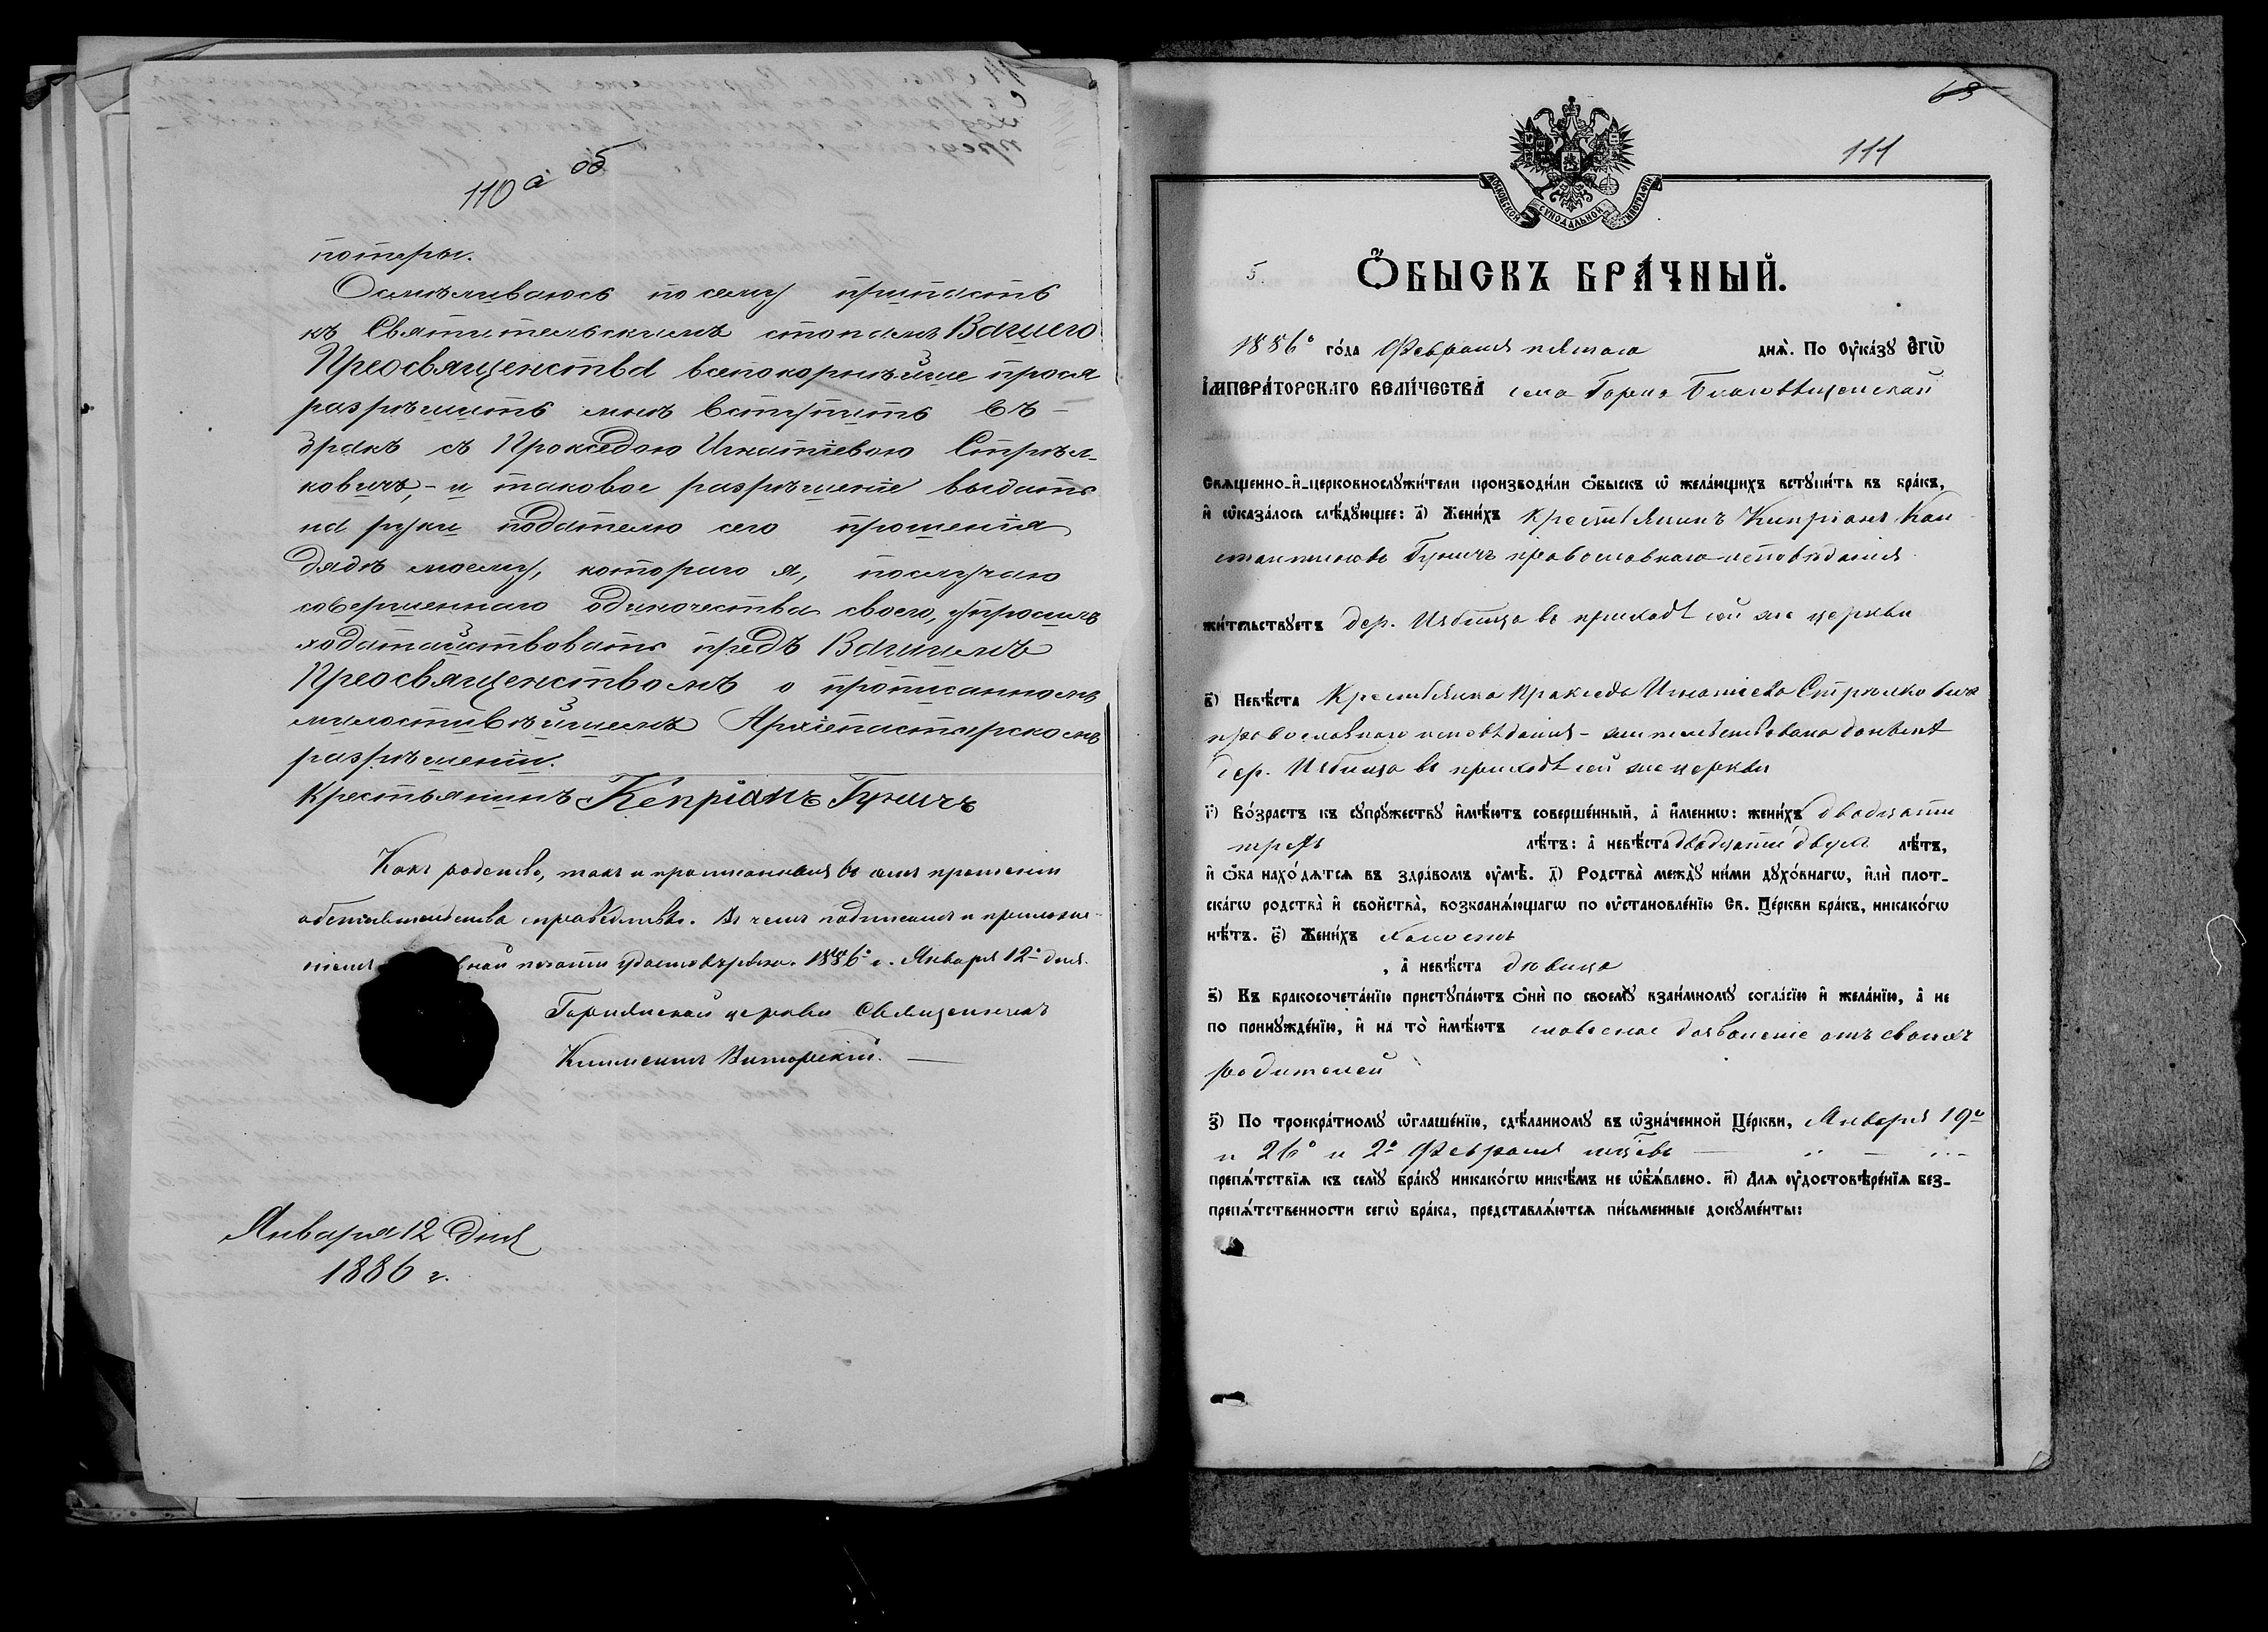 110 а об
потеры.
Осмѣливаюсь по сему припасть
къ Святительскимъ стопамъ Вашего
Преосвященства всепокорнѣйше прося
разрѣшить мнѣ вступить въ
бракъ съ Пракседою Игнатіевою Стрѣл-
ковичъ, - и таковое разрѣшеніе выдать
на руки подателю сего прошенія
дядѣ моему, котораго я, по случаю
совершеннаго одиночества своего, упросилъ
ходатайствовать предъ Вашимъ
Преосвященствомъ о прописанномъ
милостивѣйшемъ Архіепастырскомъ
разрѣшеніи.
Крестьянинъ Кепріанъ Гуничъ
Какъ родство, такъ и прописанныя въ семъ прошеніи
обстоятельства справедливы. Въ чемъ подписомъ и приложе-
ніемъ печати удостовѣряю. 1886 г. Января 12 дня.
церкви Священникъ
Климентъ
Января 12 дня
1886 г.
63
111
МОСКОВСКОЙ СѴНОДАЛЬНОЙ ТИПОГРАФІИ
5.
ОБЫСКЪ БРАЧНЫЙ.
1886 го́да Февраля пятаго дня̀. По Оу҆ка́зу Е҆гѡ̀
І҆МПЕРА́ТОРСКАГО ВЕЛИ́ЧЕСТВА села Горно Благовѣщенской
Свѧщенно-и҆-церковнослужи́тели производи́ли ѻ҆́быскъ ѡ҆ жела́ющихъ вступи́ть въ бра́къ,
и҆ ѡ҆каза́лось слѣ́дующее: а҃) Жени́хъ крестьянинъ Кипріанъ Кон
стантиновъ Гуничъ православнаго исповѣданія
жи́тельствуетъ дер. Избища въ приходѣ сей же церкви
в҃) Невѣ́ста Крестьянка Пракседа Игнатіева Стрѣлковичъ
православнаго исповѣданія - жительствовала донынѣ
дер. Избища въ приходѣ сей же церкви
г҃) Во́зрастъ къ супру́жеству и҆мѣ́ютъ соверше́нный, а҆ и҆́меннѡ: жени́хъ двадцати
трехъ лѣ́тъ: а҆ невѣ́ста двадцати двухъ лѣ́тъ,
и҆ ѻ҆́ба нахо́дятся въ здра́вомъ оу҆мѣ̀. д҃) Родства̀ ме́жду ни́ми духо́внагѡ, и҆лѝ плот-
ска́гѡ родства̀ и҆ сво́йства̀, возбраня́ющагѡ по оу҆становле́нїю Св. Це́ркви бра́къ, никако́гѡ
нѣ́тъ. є҃) Жени́хъ холостъ
, а҆ невѣ́ста дѣвица
ѕ҃) Къ бракосочета́нїю приступа́ютъ ѻ҆нѝ по своемꙋ̀ взаи́мному согла́сїю и҆ жела́нїю, а҆ не
по принужде́нїю, и҆ на то̀ и҆мѣ́ютъ словесное дозволеніе отъ своихъ
родителей
з҃) По троекра́тному ѡ҆глаше́нїю, сдѣ́ланному въ ѡ҆зна́ченной Це́ркви, Января 19
и 26 и 2 Февраля
препя́тствїя къ сему̀ бра́ку никако́гѡ никѣ́мъ не ѡ҆б̾ѧ́влено. и҃) Для оу҆достовѣре́нїя без-
препя́тственности сегѡ̀ бра́ка, представля́ются пи́сьменные докуме́нты: